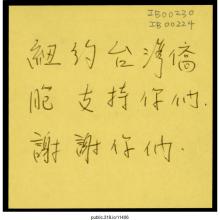 IB00230
IB00224
紐約台灣僑
胞支持你們.
謝謝你們.
public.318.io/11406